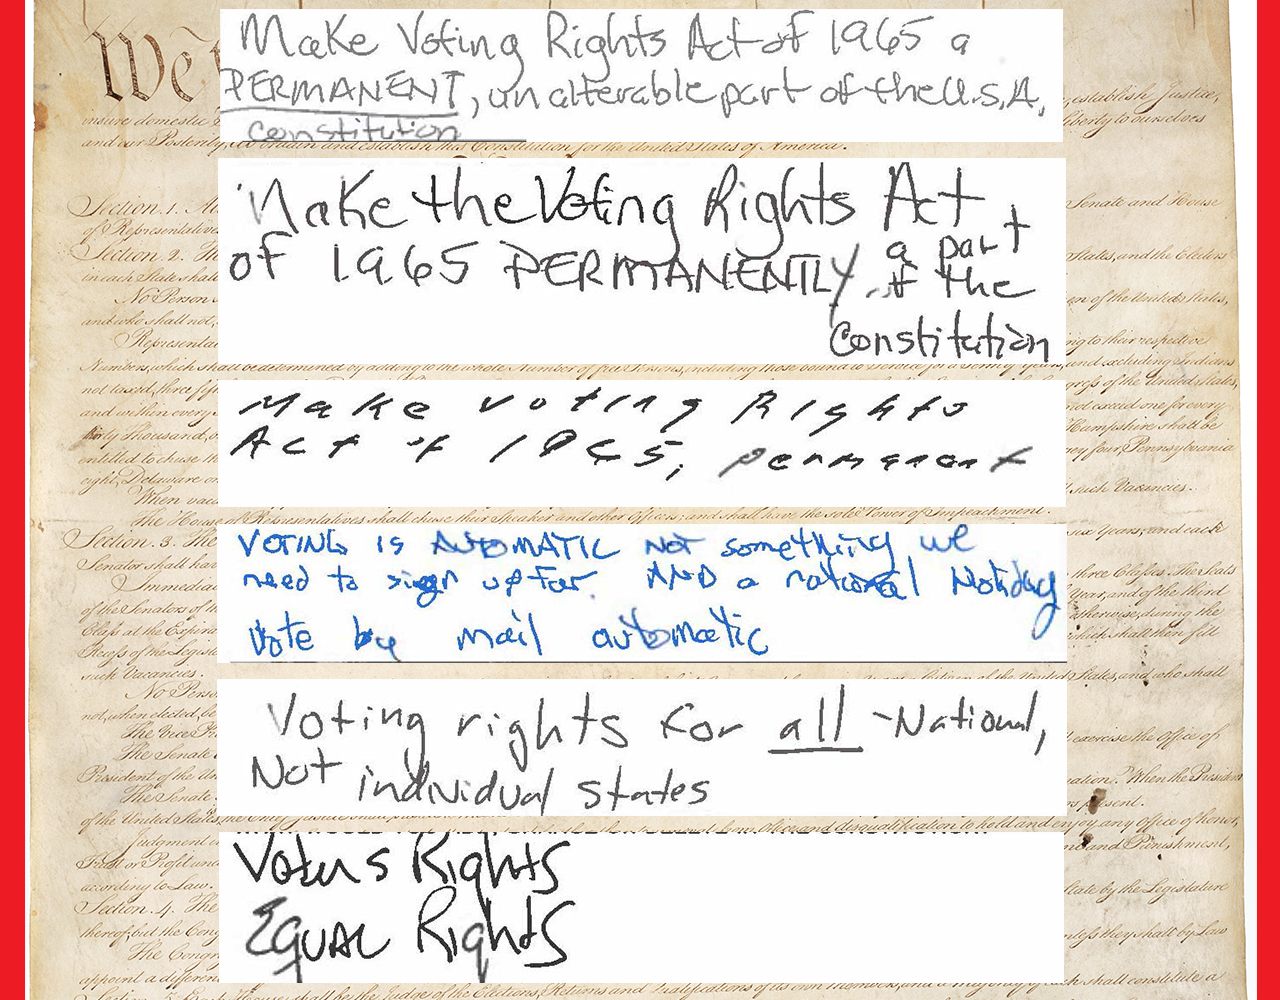 We
Make Voting Rights Act of 1965 a
PERMANENT, unalterable part of the U.S.A.
constitution
establish Justice,
insure domestic
liberty to ourselves
and our Posterity, do ordain and establish this Constitution for the United States of America.
Make the Voting Rights Act
of 1965 PERMANENTLY a part
of the
Constitution
Section. 1. All
Senate and House
of Representatives
Section. 2. The
States, and the Electors
in each State shall
No Person
of the United States,
and who shall not,
Representa
to their respective
Numbers, which shall be determined by adding to the whole Number of free Persons, including those bound to Service for a Term of Years, and excluding Indians
not taxed, three fifths
Congress of the United States,
and within every
not exceed one for every
thirty Thousand,
Hampshire shall be
entitled to chuse three
four, Pennsylvania
eight, Delaware one
When vacan
such Vacancies.
The House of Representatives shall chuse their Speaker and other Officers; and shall have the sole Power of Impeachment.
Make voting Rights
Act of 1965, permanent
VOTING IS AUTOMATIC NOT something we
need to sign up for. AND a national Holiday
Vote by mail automatic
Section. 3. The
six Years; and each
Senator shall have
Immedia
three Classes. The Seats
of the Senators of the
Year, and of the third
Class at the Expira
otherwise, during the
Recess of the Legisla
which shall then fill
such Vacancies.
No Person
States, and who shall
not, when elected, be
The Vice Pr
The Senate
exercise the Office of
President of the Un
The Senate
When the President
of the United States,
present.
Voting rights for all - National,
Not individual states
Judgment
disqualification to hold and enjoy any Office of honor,
Trust or Profit under
and Punishment,
according to Law.
Section. 4. The
by the Legislature
thereof; but the Cong
The Congr
they shall by Law
appoint a different
Voters Rights
Equal Rights
Section. 5. Each House shall be the Judge of the Elections, Returns and Qualifications of its own Members, and a Majority of each shall constitute a